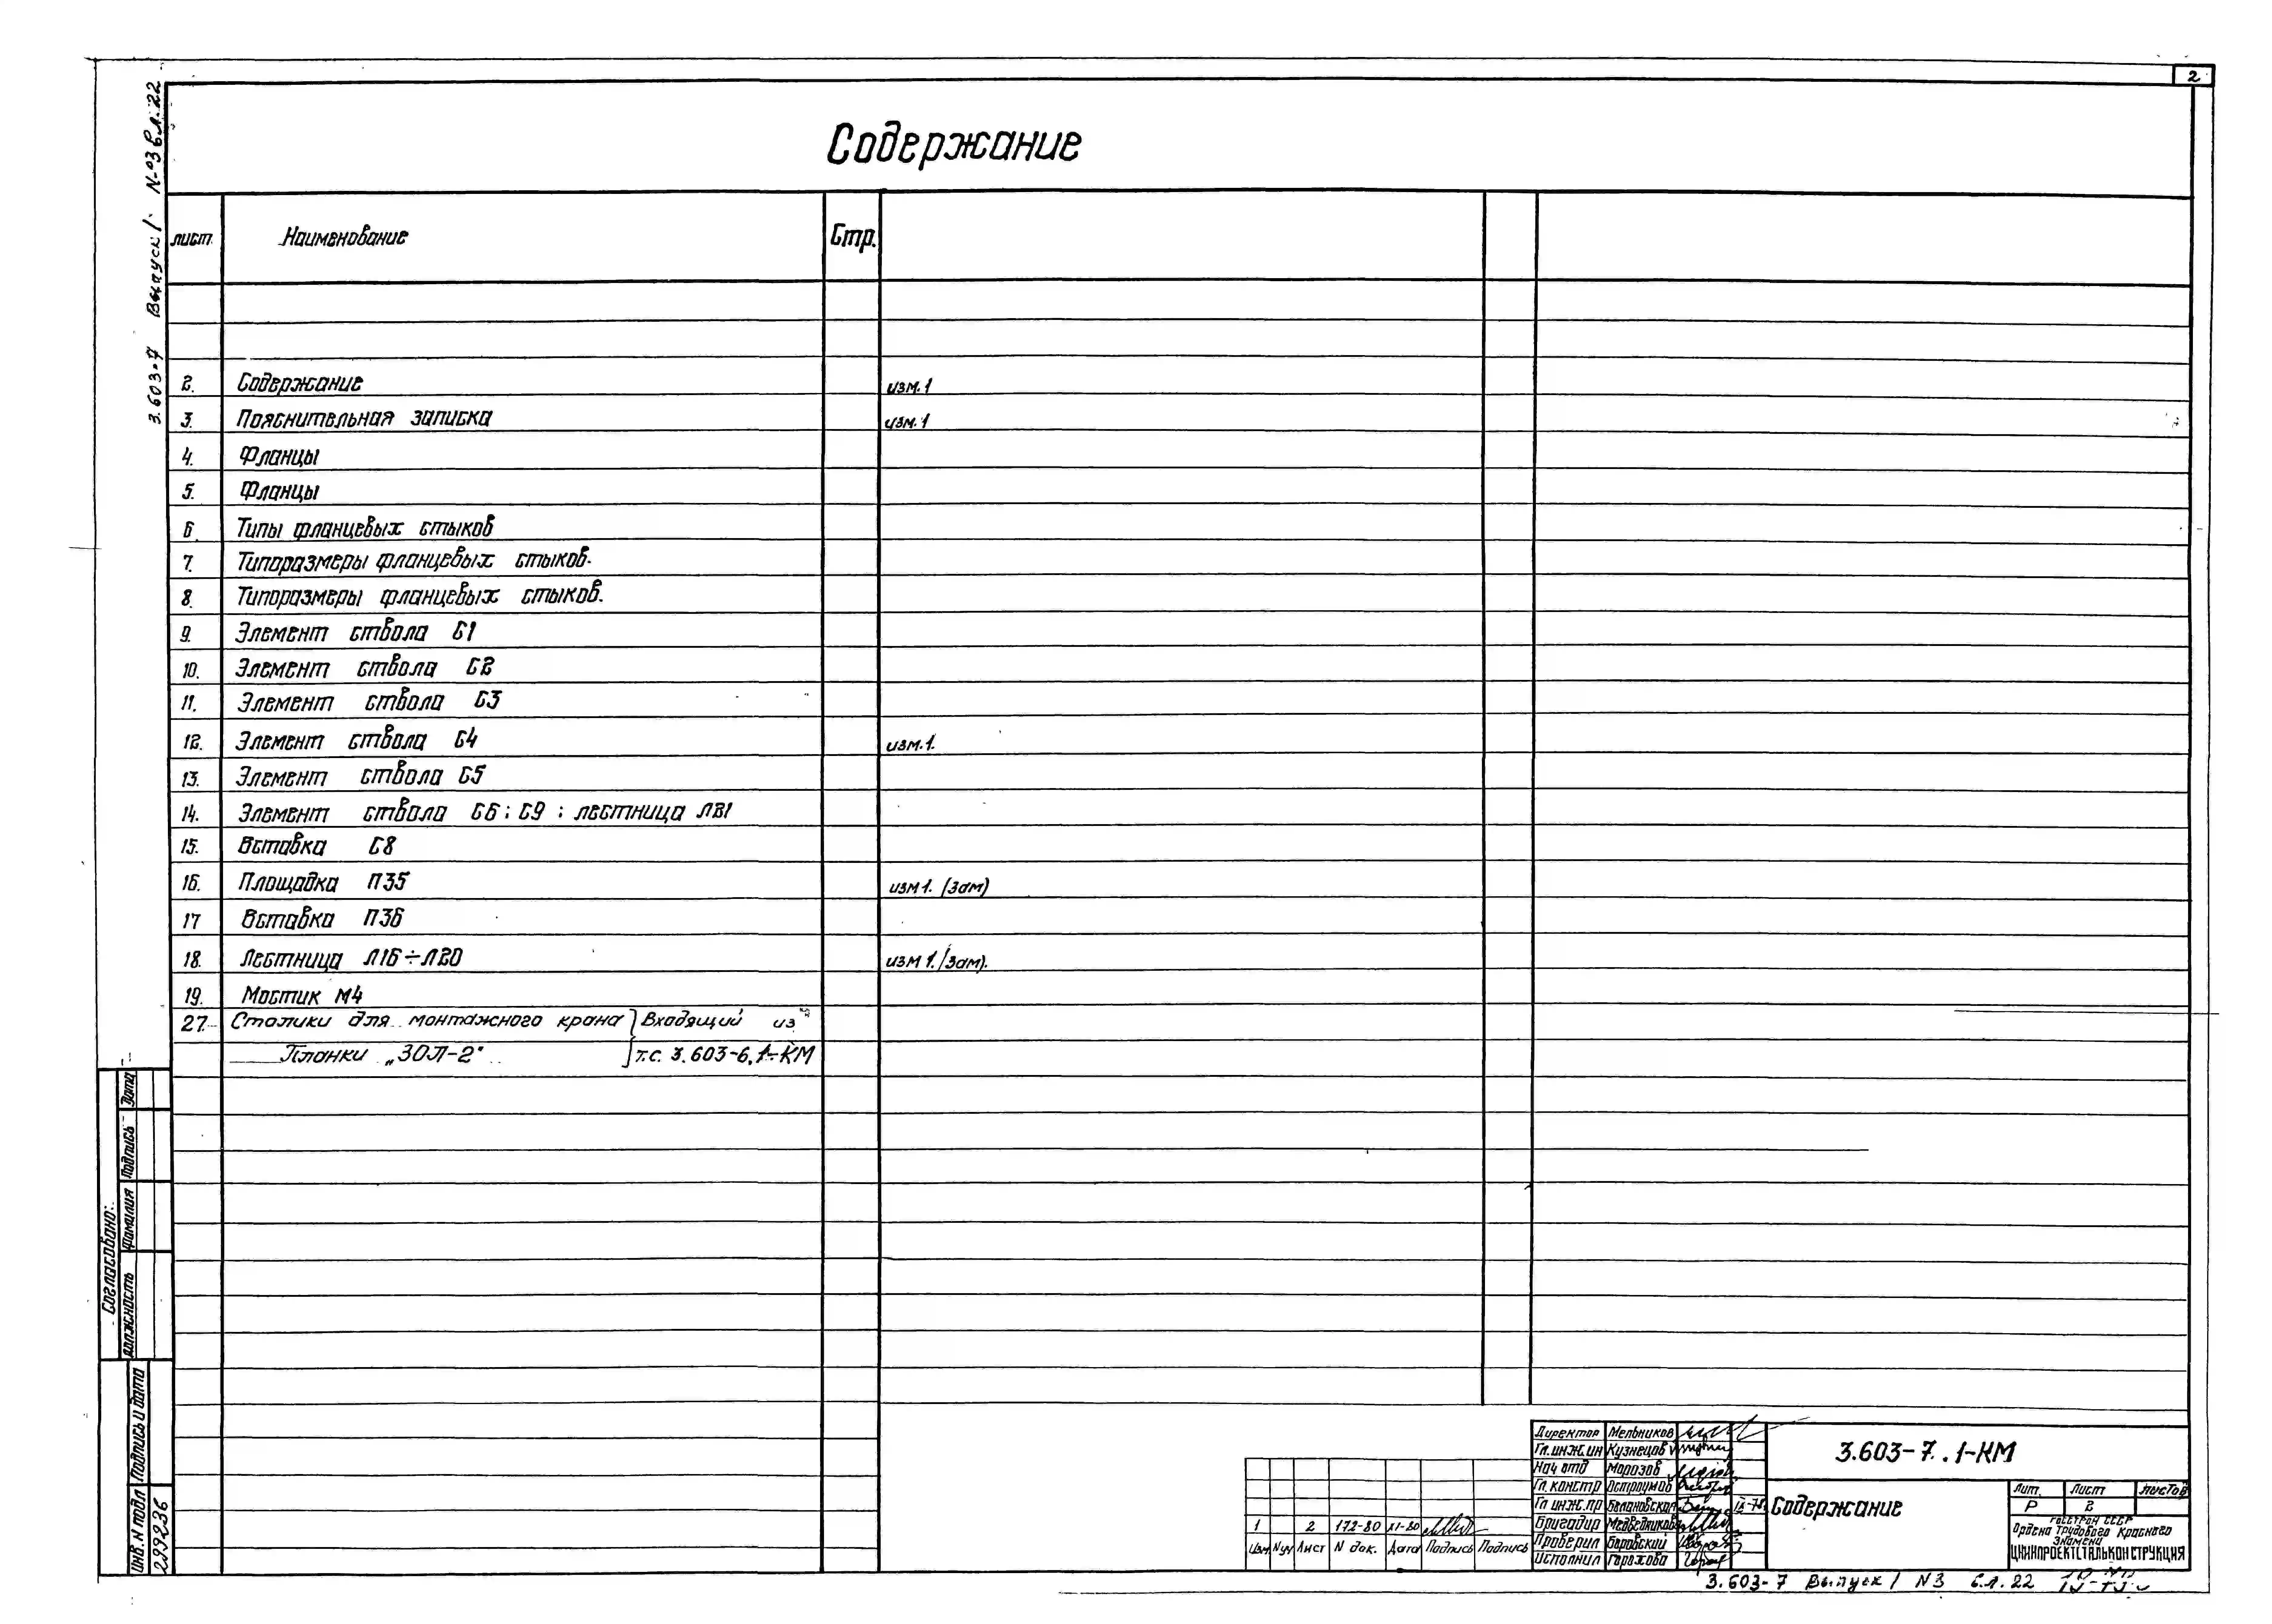 2
Содержание
лист. Наименование Стр.
2. Содержание изм.1
3. Пояснительная записка изм.1
4. Фланцы
5. Фланцы
6. Типы фланцевых стыков
7. Типоразмеры фланцевых стыков.
8. Типоразмеры фланцевых стыков.
9. Элемент ствола С1
10. Элемент ствола С2
11. Элемент ствола С3
12. Элемент ствола С4 изм.1.
13. Элемент ствола С5
14. Элемент ствола С6; С9; лестница Л21
15. Вставка С8
16. Площадка П35 изм1. (Зам)
17 Вставка П36
18. Лестница Л16÷Л20 изм 1. (Зам).
19. Мостик М4
27. Столики для монтажного крана } Входящий из
Планки „ЗОЛ-2" т.с. 3.603-6.1-КМ
3.603-7 Выпуск 1 №3 вл. 22
Согласовано:
Должность Фамилия Подпись Дата
Инв. N подл Подпись и дата
299236
Директор Мельников
Гл. инж. ин Кузнецов
Нач отд Морозов
Гл. констр Остроумов
Гл инж. пр Белановская
Бригадир Медведников
Проверил Боровский
Исполнил Горохова
1 2 172-80 XI-80
Изм Nуч Лист N док. Дата Подпись Подпись
3.603-7.1-КМ
Содержание
Лит. Лист Листов
Р 2
ГОССТРОЙ СССР
Ордена Трудового Красного
Знамени
ЦНИИПРОЕКТСТАЛЬКОНСТРУКЦИЯ
3.603-7 Выпуск 1 N3 вл. 22